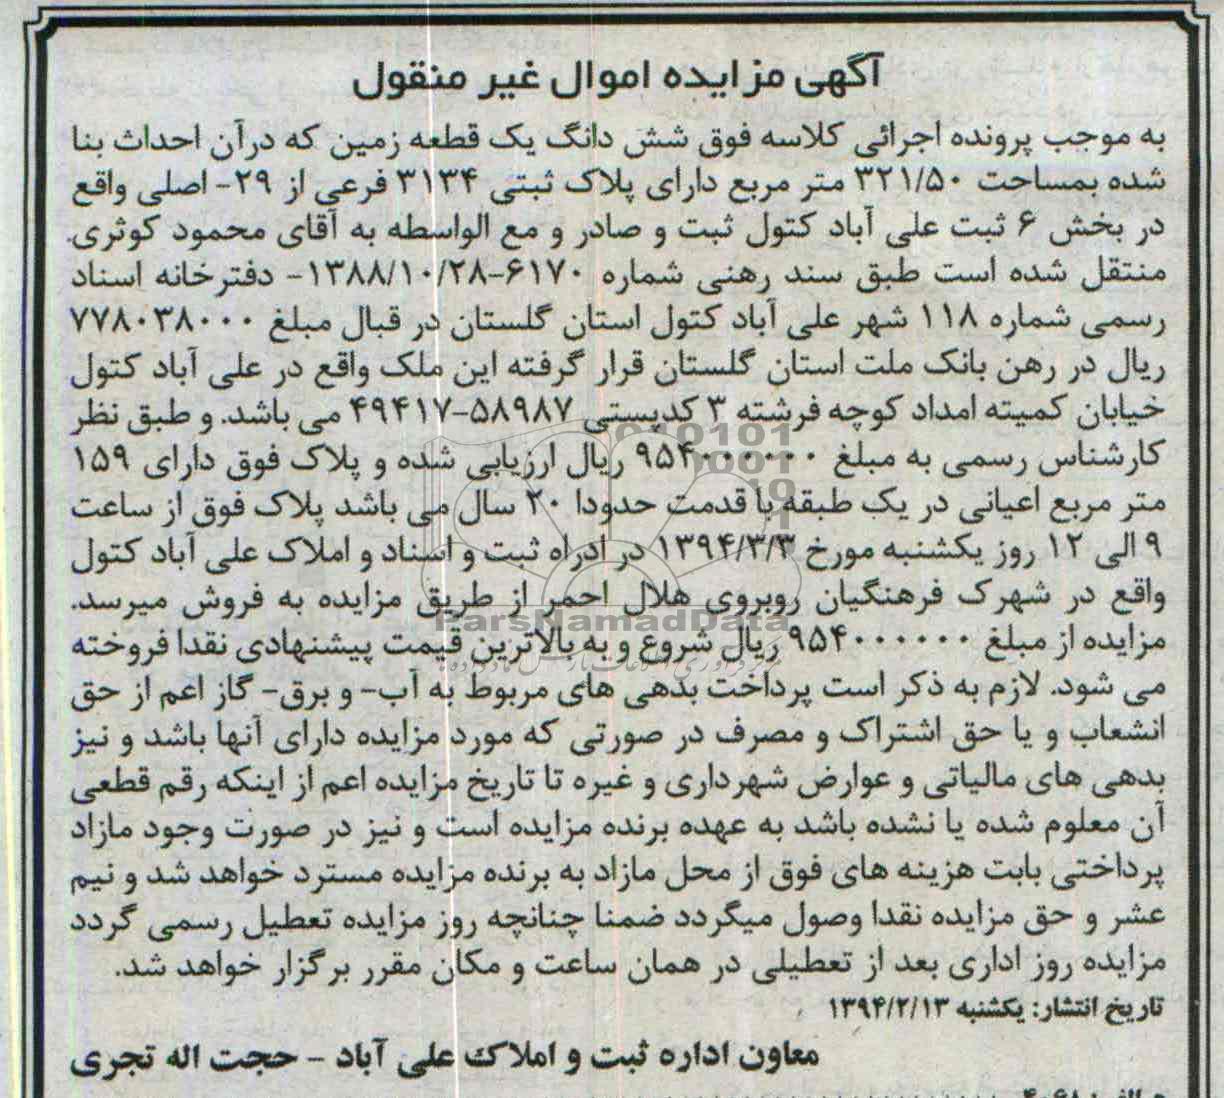 آگهی مزایده اموال غیر منقول
به موجب پرونده اجرائی کلاسه فوق شش دانگ یک قطعه زمین که درآن احداث بنا
شده بمساحت ۳۲۱/۵۰ متر مربع دارای پلاک ثبتی ۳۱۳۴ فرعی از ۲۹- اصلی واقع
در بخش ۶ ثبت علی آباد کتول ثبت و صادر و مع الواسطه به آقای محمود کوثری.
منتقل شده است طبق سند رهنی شماره ۶۱۷۰-۱۳۸۸/۱۰/۲۸- دفترخانه اسناد
رسمی شماره ۱۱۸ شهر علی آباد کتول استان گلستان در قبال مبلغ ۷۷۸۰۳۸۰۰۰
ریال در رهن بانک ملت استان گلستان قرار گرفته این ملک واقع در علی آباد کتول
خیابان کمیته امداد کوچه فرشته ۳ کدپستی ۵۸۹۸۷-۴۹۴۱۷ می باشد. و طبق نظر
کارشناس رسمی به مبلغ ۹۵۴۰۰۰۰۰۰ ریال ارزیابی شده و پلاک فوق دارای ۱۵۹
متر مربع اعیانی در یک طبقه با قدمت حدودا ۲۰ سال می باشد پلاک فوق از ساعت
۹ الی ۱۲ روز یکشنبه مورخ ۱۳۹۴/۳/۳ در ادراه ثبت و اسناد و املاک علی آباد کتول
واقع در شهرک فرهنگیان روبروی هلال احمر از طریق مزایده به فروش میرسد.
ParsNamadData
مزایده از مبلغ ۹۵۴۰۰۰۰۰۰ ریال شروع و به بالاترین قیمت پیشنهادی نقدا فروخته
می شود. لازم به ذکر است پرداخت بدهی های مربوط به آب- و برق- گاز اعم از حق
انشعاب و یا حق اشتراک و مصرف در صورتی که مورد مزایده دارای آنها باشد و نیز
بدهی های مالیاتی و عوارض شهرداری و غیره تا تاریخ مزایده اعم از اینکه رقم قطعی
آن معلوم شده یا نشده باشد به عهده برنده مزایده است و نیز در صورت وجود مازاد
پرداختی بابت هزینه های فوق از محل مازاد به برنده مزایده مسترد خواهد شد و نیم
عشر و حق مزایده نقدا وصول میگردد ضمنا چنانچه روز مزایده تعطیل رسمی گردد
مزایده روز اداری بعد از تعطیلی در همان ساعت و مکان مقرر برگزار خواهد شد.
تاریخ انتشار: یکشنبه ۱۳۹۴/۲/۱۳
معاون اداره ثبت و املاک علی آباد - حجت اله تجری